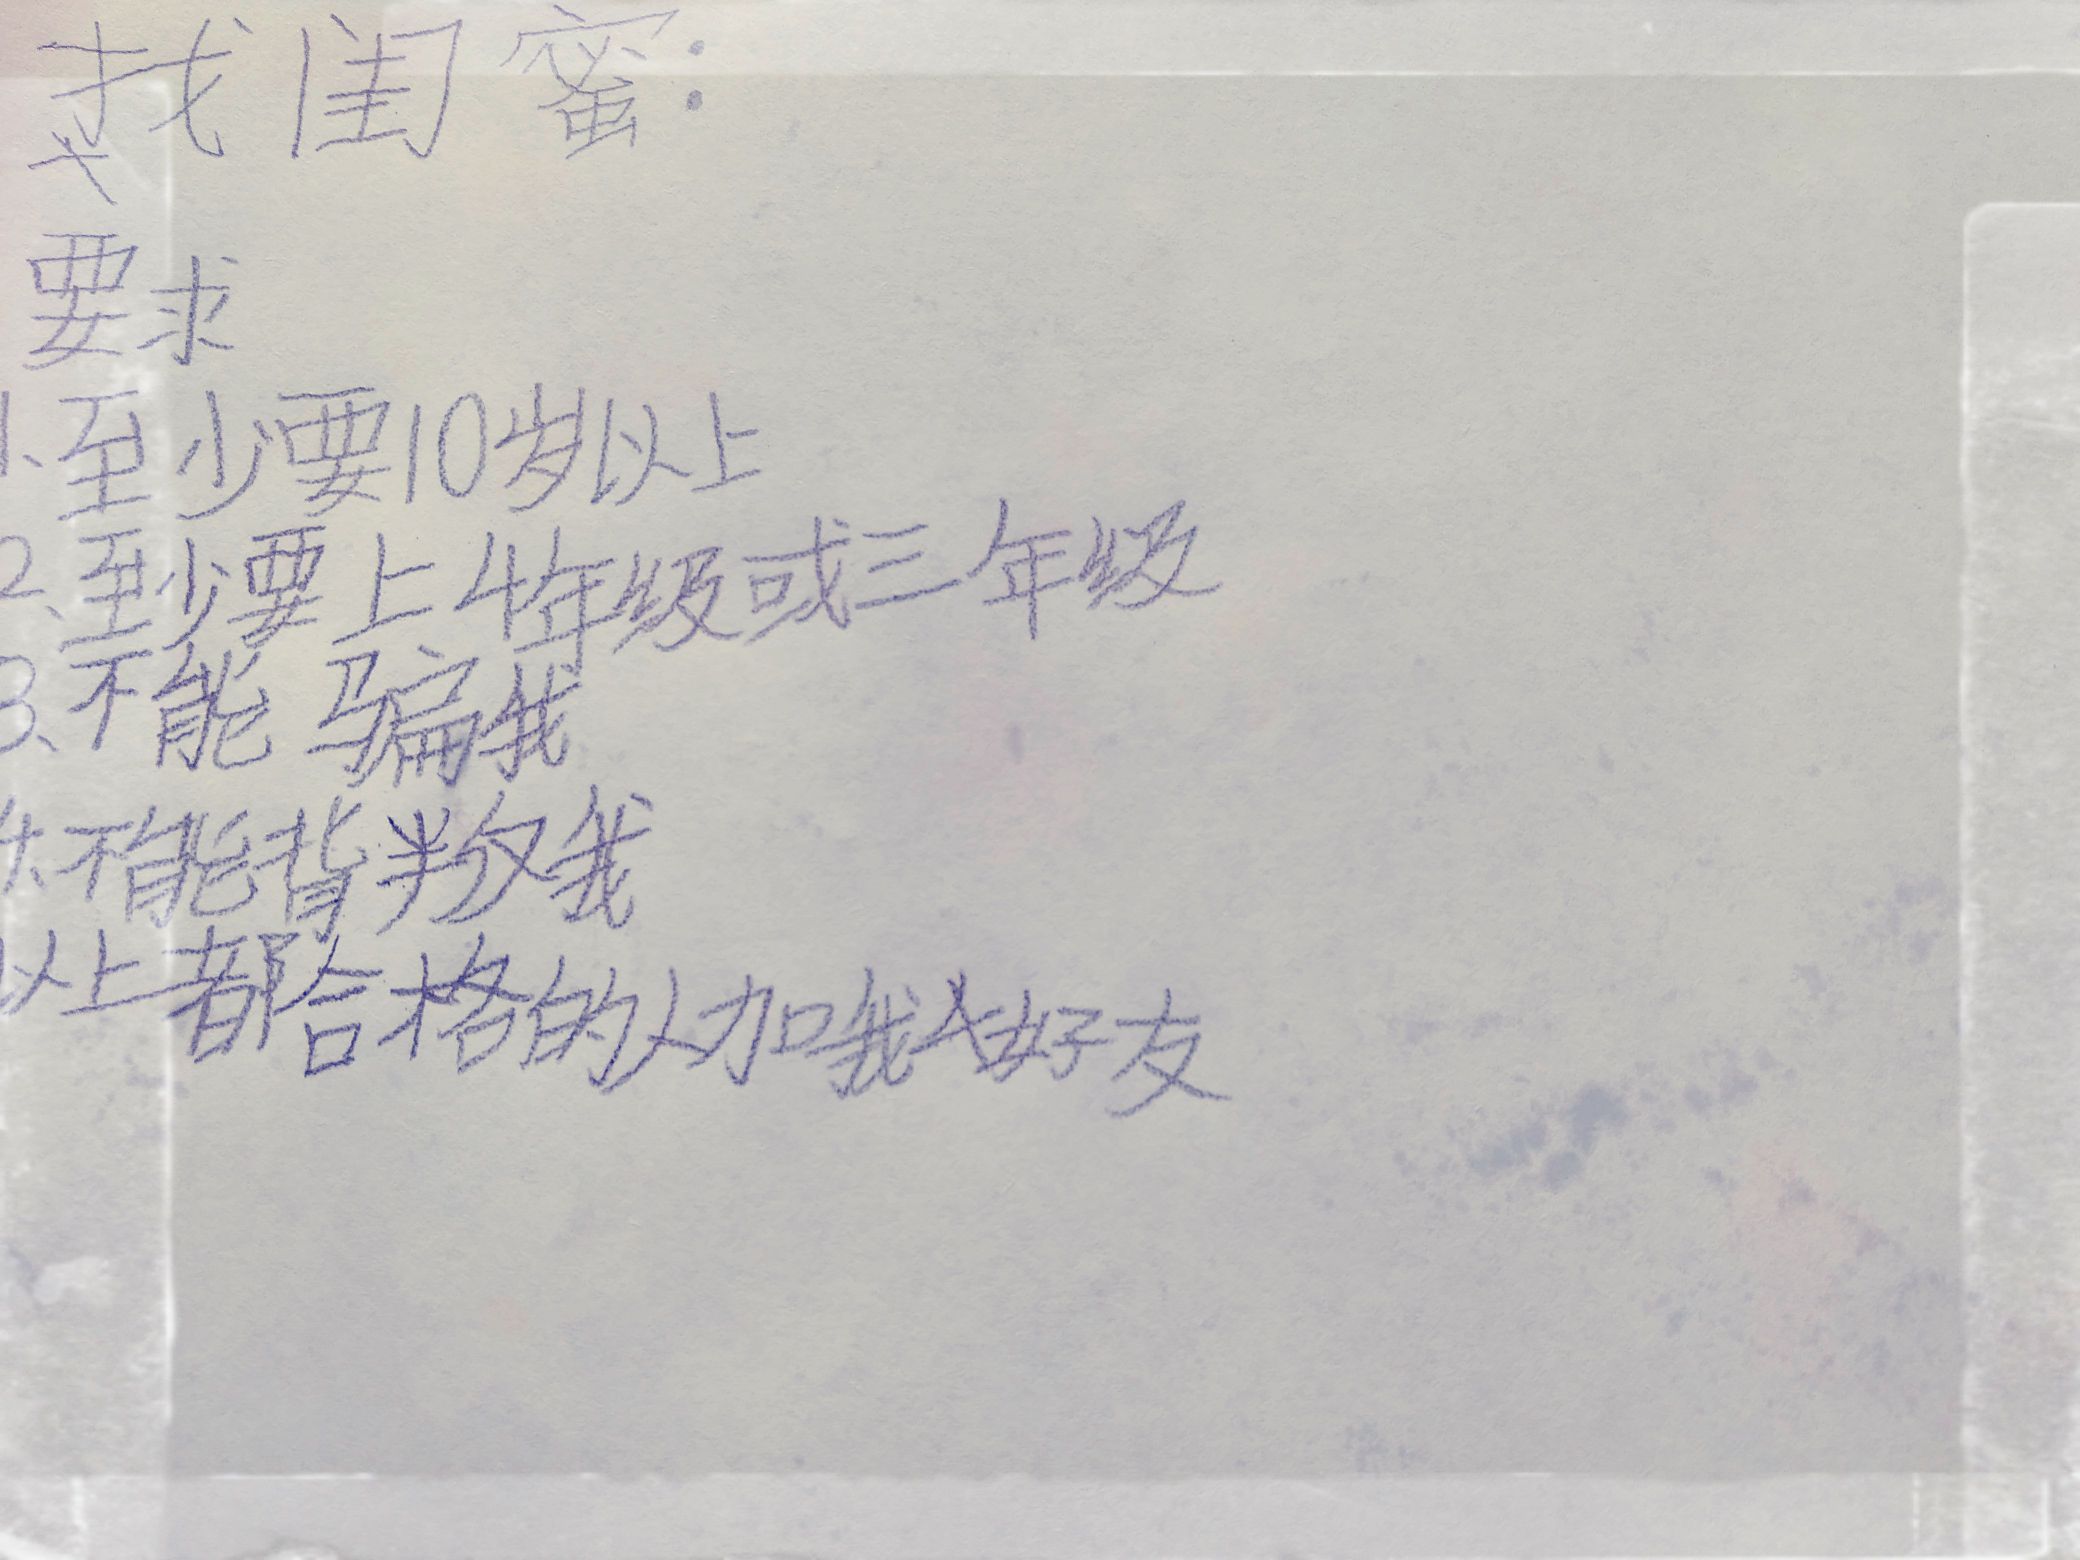 找闺蜜:
要求
1、至少要10岁以上
2、至少要上4年级或三年级
3、不能骗我
4、不能背叛我
以上都合格的人加我好友